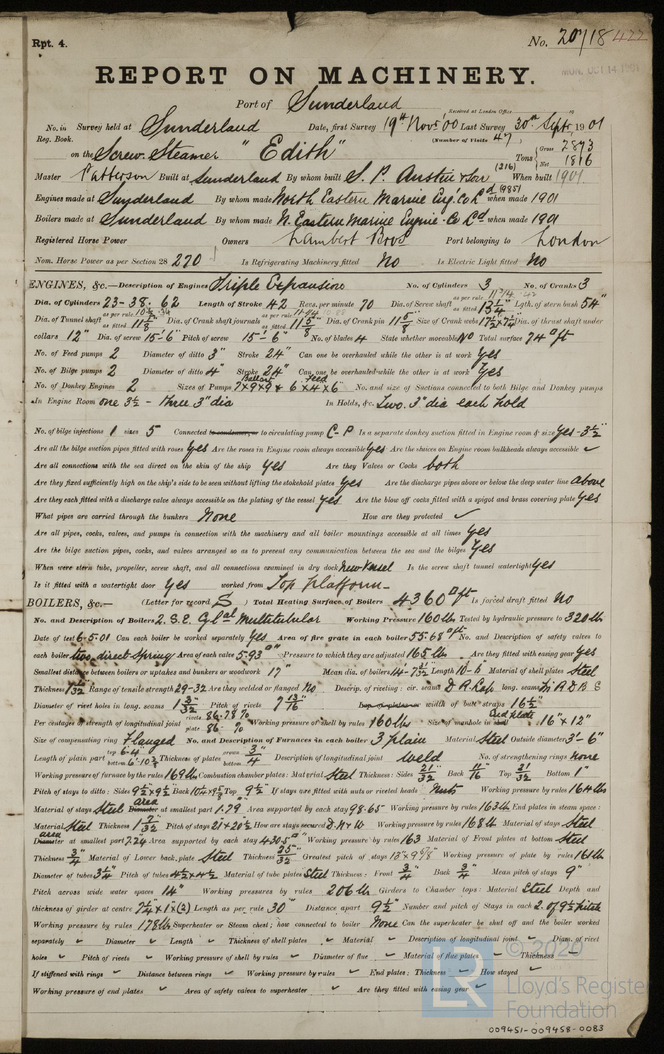 Rpt. 4.
No. 20718
REPORT ON MACHINERY.
Port of Sunderland
Received at London Office
No. in Reg. Book. Survey held at Sunderland Date, first Survey 19th Novr '00 Last Survey 30th Septr 1901
(Number of Visits 47)
on the Screw Steamer "Edith" Tons Gross 2893 Net 1816
Master Patterson Built at Sunderland By whom built S. P. Austin & Son (216) When built 1901
Engines made at Sunderland By whom made North Eastern Marine Eng. Co Ld when made 1901
Boilers made at Sunderland By whom made N. Eastern Marine Engine Co Ld when made 1901
Registered Horse Power Owners Lambert Bros Port belonging to London
Nom. Horse Power as per Section 28 270 Is Refrigerating Machinery fitted No Is Electric Light fitted No
ENGINES, &c.— Description of Engines Triple Expansion No. of Cylinders 3 No. of Cranks 3
Dia. of Cylinders 23-38-62 Length of Stroke 42 Revs. per minute 70 Dia. of Screw shaft as per rule as fitted Lgth. of stern bush 54"
Dia. of Tunnel shaft as per rule as fitted 11 1/8 Dia. of Crank shaft journals as per rule as fitted 11 5/8 Dia. of Crank pin 11 5/8 Size of Crank webs Dia. of thrust shaft under
collars 12" Dia. of screw 15'-6" Pitch of screw 15'-6" No. of blades 4 State whether moveable No Total surface 74 ft
No. of Feed pumps 2 Diameter of ditto 3" Stroke 24" Can one be overhauled while the other is at work Yes
No. of Bilge pumps 2 Diameter of ditto 4" Stroke 24" Can one be overhauled while the other is at work Yes
No. of Donkey Engines 2 Sizes of Pumps Ballast 7x9x9 & Feed 6x4x6" No. and size of Suctions connected to both Bilge and Donkey pumps
In Engine Room one 3 1/2 - three 3" dia In Holds, &c. Two. 3" dia each hold
No. of bilge injections 1 sizes 5 Connected to condenser, or to circulating pump C.P Is a separate donkey suction fitted in Engine room & size Yes - 3 1/2"
Are all the bilge suction pipes fitted with roses Yes Are the roses in Engine room always accessible Yes Are the sluices on Engine room bulkheads always accessible ✓
Are all connections with the sea direct on the skin of the ship Yes Are they Valves or Cocks both
Are they fixed sufficiently high on the ship's side to be seen without lifting the stokehold plates Yes Are the discharge pipes above or below the deep water line above
Are they each fitted with a discharge valve always accessible on the plating of the vessel Yes Are the blow off cocks fitted with a spigot and brass covering plate Yes
What pipes are carried through the bunkers None How are they protected ✓
Are all pipes, cocks, valves, and pumps in connection with the machinery and all boiler mountings accessible at all times Yes
Are the bilge suction pipes, cocks, and valves arranged so as to prevent any communication between the sea and the bilges Yes
When were stern tube, propeller, screw shaft, and all connections examined in dry dock New Vessel Is the screw shaft tunnel watertight Yes
Is it fitted with a watertight door Yes worked from Top platform
BOILERS, &c.— (Letter for record S) Total Heating Surface of Boilers 4360 ft Is forced draft fitted No
No. and Description of Boilers 2. S.E. Multitubular Working Pressure 160 lb Tested by hydraulic pressure to 320 lb
Date of test 6-5-01 Can each boiler be worked separately Yes Area of fire grate in each boiler 55.68 ft No. and Description of safety valves to
each boiler two, direct Spring Area of each valve 5.93 Pressure to which they are adjusted 165 lb Are they fitted with easing gear Yes
Smallest distance between boilers or uptakes and bunkers or woodwork 17" Mean dia. of boilers Length 10-6 Material of shell plates Steel
Thickness Range of tensile strength 29-32 Are they welded or flanged No Descrip. of riveting: cir. seams D.R.Lap long. seams
Diameter of rivet holes in long. seams Pitch of rivets 7 13/16 width of butt straps 16 1/2"
Per centages of strength of longitudinal joint rivets 86.78 % plate 86 % Working pressure of shell by rules 160 lb Size of manhole in End plate 16" x 12"
Size of compensating ring Flanged No. and Description of Furnaces in each boiler 3 plain Material Steel Outside diameter 3'-6"
Length of plain part top 6-4 bottom Thickness of plates 3/4 Description of longitudinal joint Weld No. of strengthening rings None
Working pressure of furnace by the rules 169 lb Combustion chamber plates: Material Steel Thickness: Sides 21/32 Back 11/16 Top 21/32 Bottom 1"
Pitch of stays to ditto: Sides Back Top 9 1/2" If stays are fitted with nuts or riveted heads Nuts Working pressure by rules 164 lb
Material of stays Steel area at smallest part 1.79" Area supported by each stay 98.65 Working pressure by rules 163 lb End plates in steam space:
Material Steel Thickness 1 7/32 Pitch of stays 21 x 20 1/2 How are stays secured D.N & W Working pressure by rules 168 lb Material of stays Steel
area at smallest part 7.24 Area supported by each stay 430.5 Working pressure by rules 163 Material of Front plates at bottom Steel
Thickness 3/4 Material of Lower back plate Steel Thickness 25/32 Greatest pitch of stays Working pressure of plate by rules 161 lb
Diameter of tubes 3 1/4" Pitch of tubes 4 1/2 x 4 1/2 Material of tube plates Steel Thickness: Front 3/4 Back 3/4 Mean pitch of stays 9"
Pitch across wide water spaces 14" Working pressures by rules 206 lb Girders to Chamber tops: Material Steel Depth and
thickness of girder at centre 7 1/4 x 1 x (2) Length as per rule 30" Distance apart 9 1/2 Number and pitch of Stays in each 2. of 9 1/2 pitch
Working pressure by rules 178 lb Superheater or Steam chest; how connected to boiler None Can the superheater be shut off and the boiler worked
separately ✓ Diameter ✓ Length ✓ Thickness of shell plates ✓ Material ✓ Description of longitudinal joint ✓ Diam. of rivet
holes ✓ Pitch of rivets ✓ Working pressure of shell by rules ✓ Diameter of flue ✓ Material of flue plates ✓ Thickness
If stiffened with rings ✓ Distance between rings ✓ Working pressure by rules ✓ End plates: Thickness ✓ How stayed ✓
Working pressure of end plates ✓ Area of safety valves to superheater ✓ Are they fitted with easing gear ✓
© 2020
LR
Lloyd's Register
Foundation
009451-009458-0083